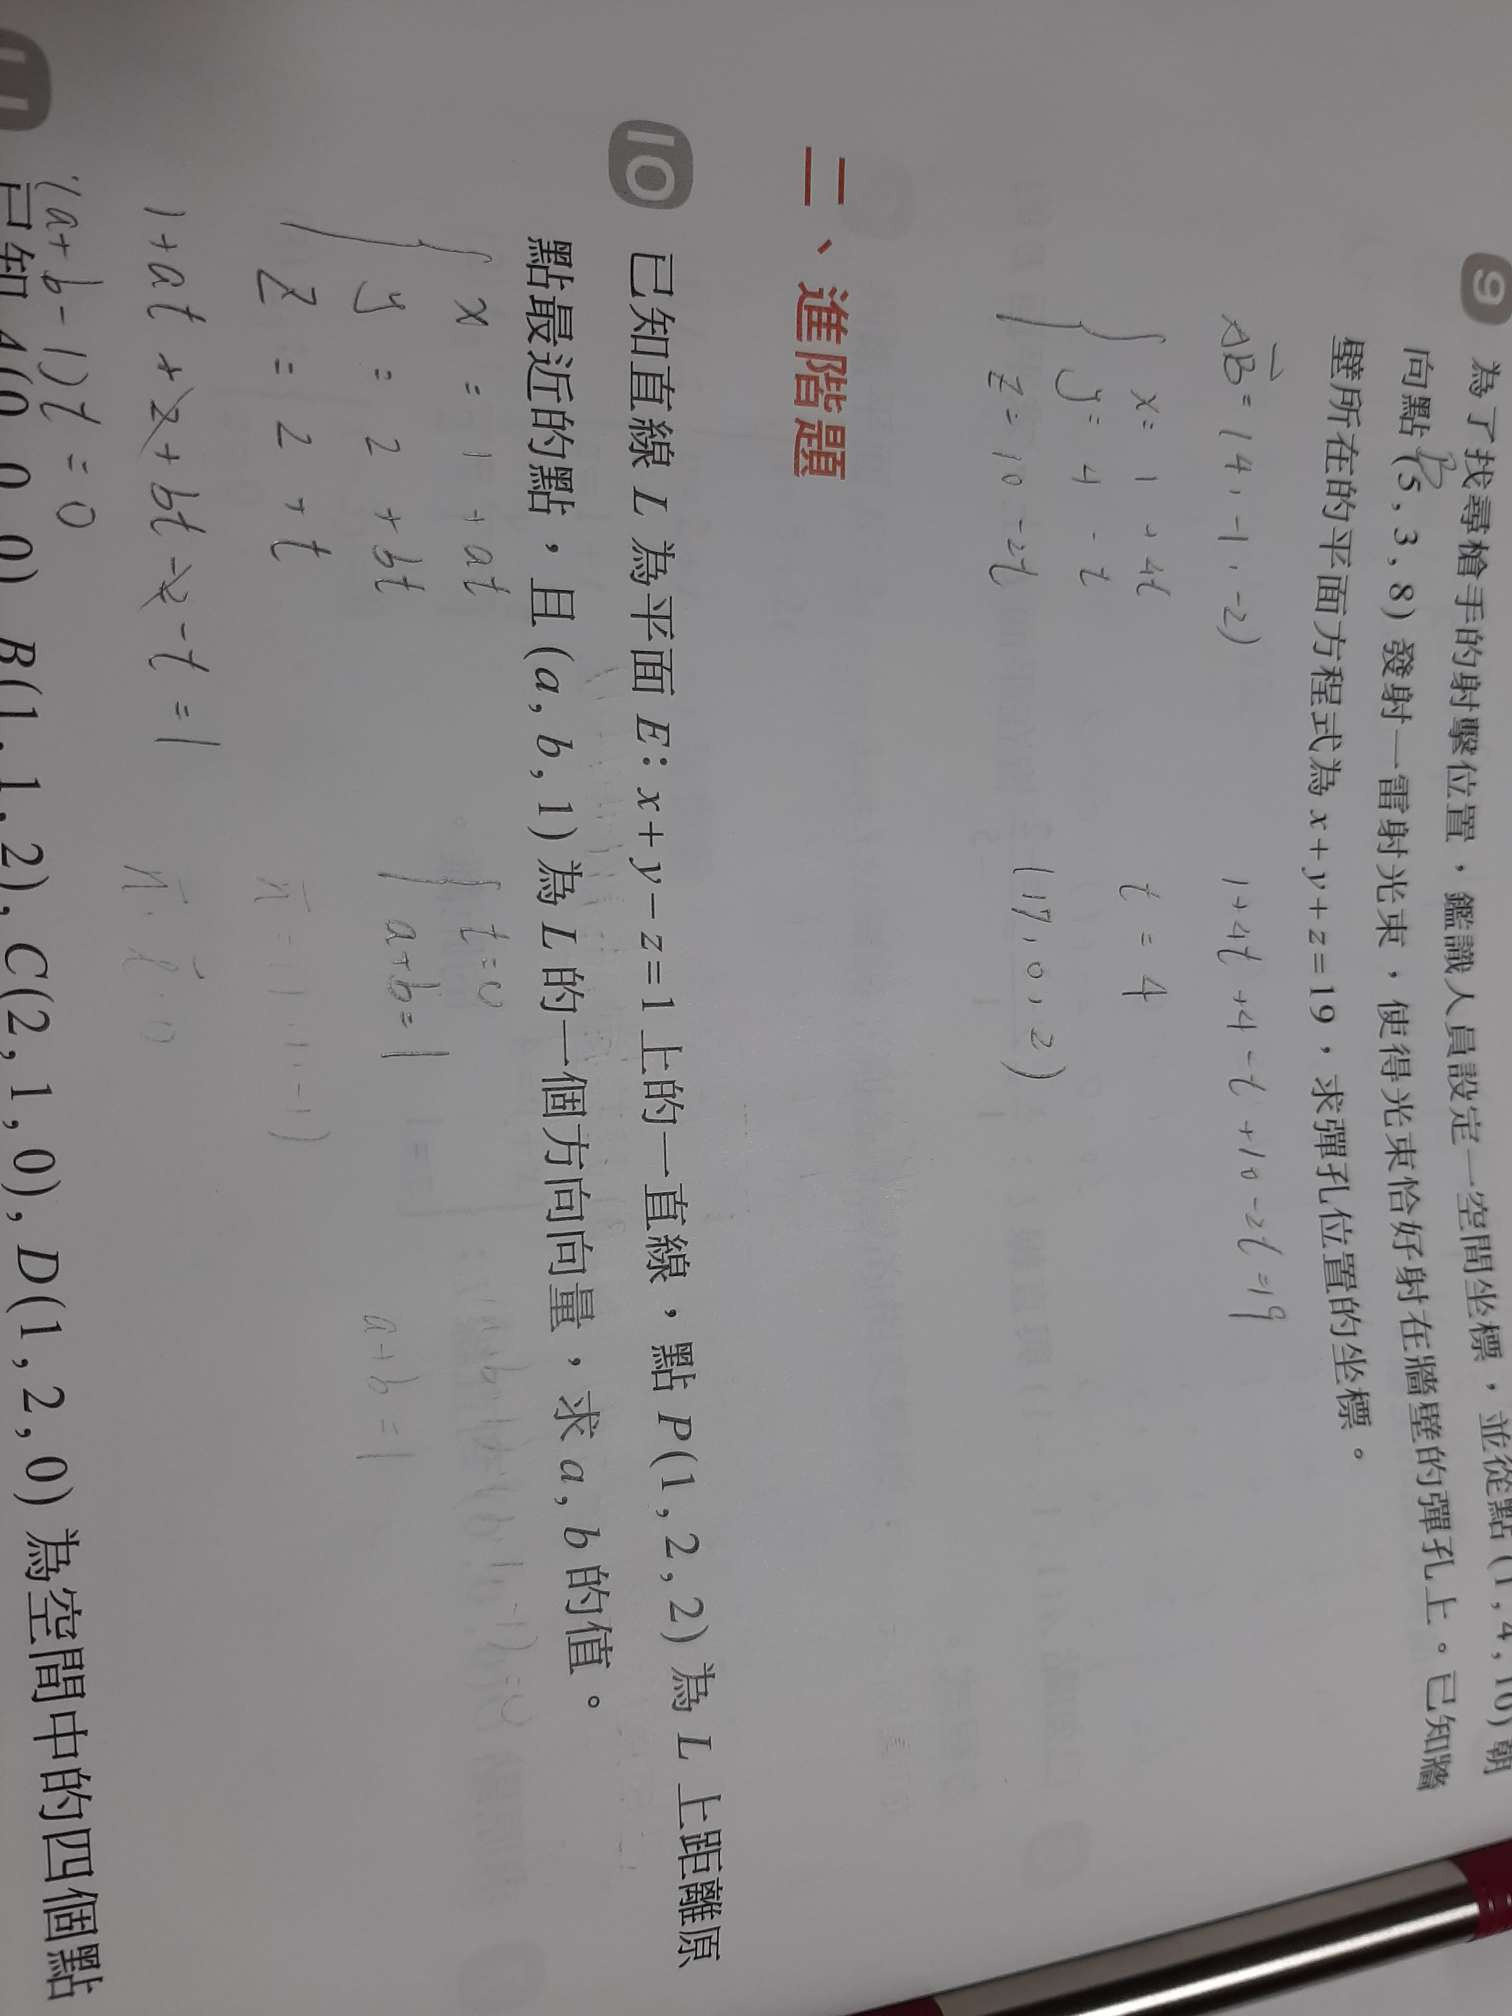 9 為了找尋槍手的射擊位置，鑑識人員設定一空間坐標，並從點 (1, 4, 10) 朝
向點 (5, 3, 8) 發射一雷射光束，使得光束恰好射在牆壁的彈孔上。已知牆
B
壁所在的平面方程式為 x+y+z=19，求彈孔位置的坐標。
AB = (4, -1, -2)
1+4t+4-t+10-2t=19
x= 1+4t
t = 4
y= 4-t
z= 10-2t
(17, 0, 2)
二、進階題
10 已知直線 L 為平面 E: x+y-z=1 上的一直線，點 P(1, 2, 2) 為 L 上距離原
點最近的點，且 (a, b, 1) 為 L 的一個方向向量，求 a, b 的值。
x = 1+at
t=0
y = 2+bt
a+b=1
a+b=1
z = 2+t
n = (1, 1, -1)
1+at+2+bt-2-t=1
n · l = 0
(a+b-1)t=0
11 已知 A(0, 0, 0), B(1, 1, 2), C(2, 1, 0), D(1, 2, 0) 為空間中的四個點